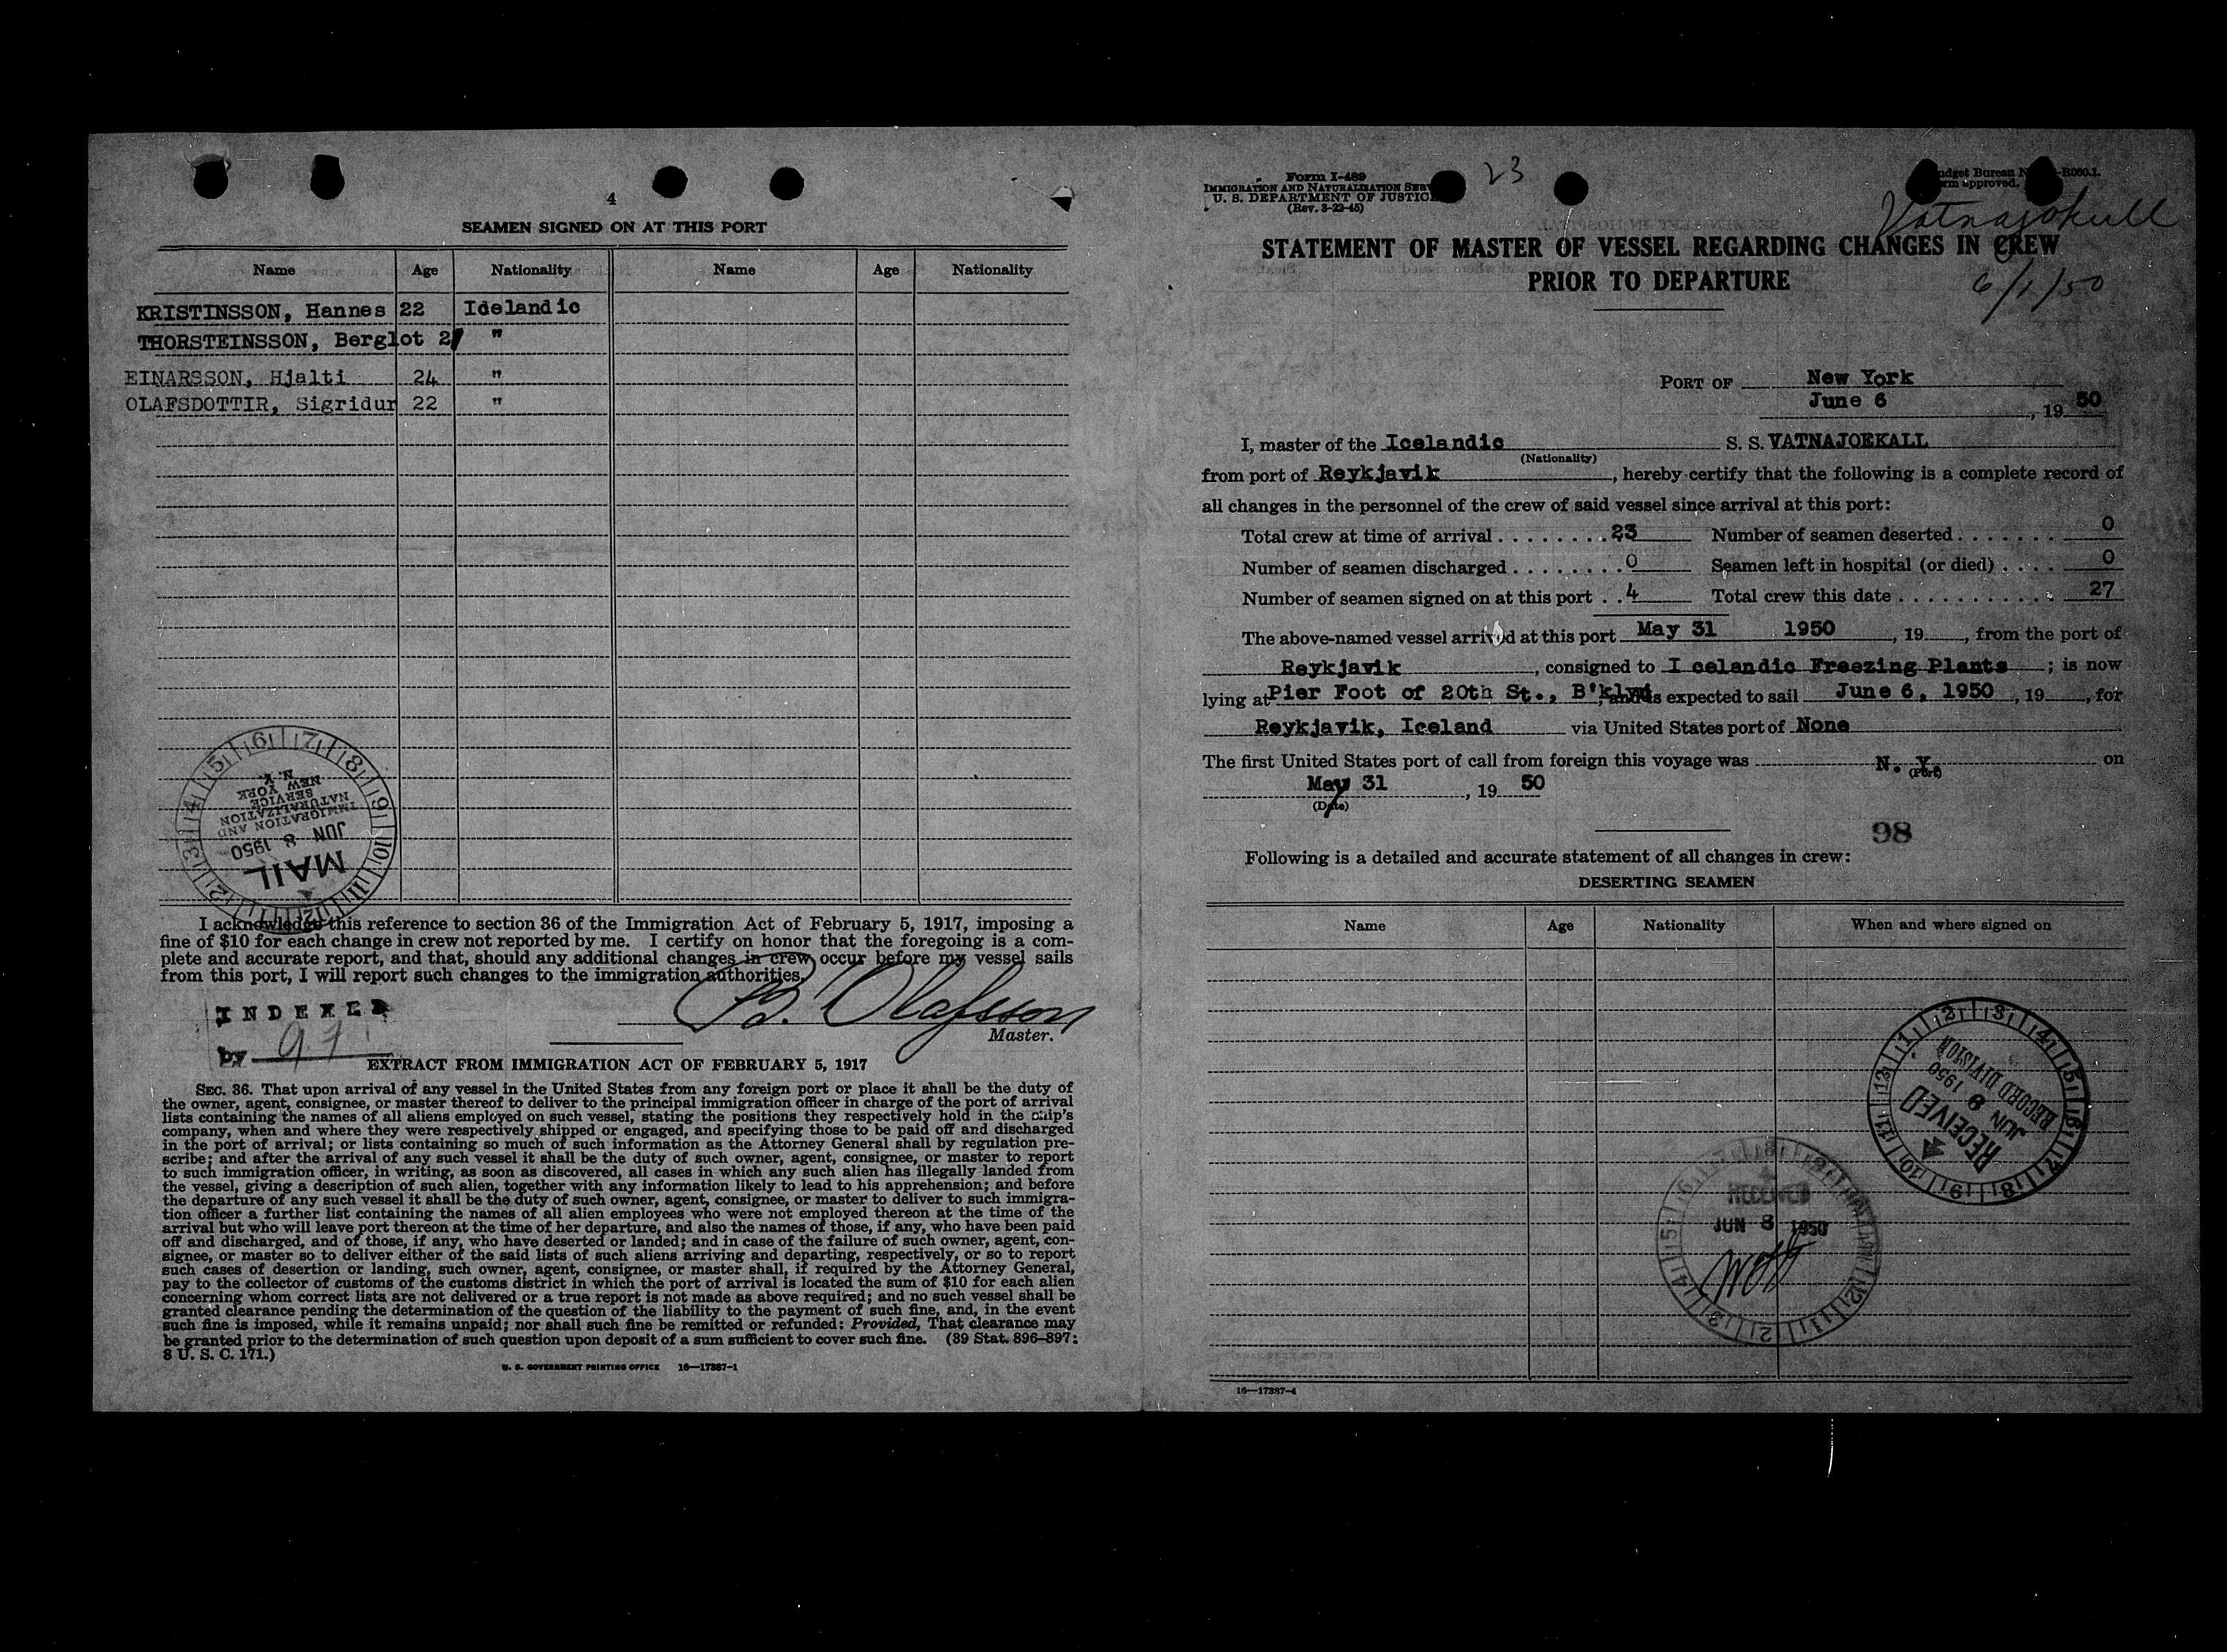 4
SEAMEN SIGNED ON AT THIS PORT
Name Age Nationality Name Age Nationality
KRISTINSSON, Hannes 22 Idelandic
THORSTEINSSON, Berglot "
EINARSSON, Hjalti 24 "
OLAFSDOTTIR, Sigridur 22 "
6 7 8 9 10 11 12 1 2 3 4 5
N. Y.
NEW YORK
SERVICE
NATURALIZATION
IMMIGRATION AND
JUN 8 1950
MAIL
I acknowledge this reference to section 36 of the Immigration Act of February 5, 1917, imposing a
fine of $10 for each change in crew not reported by me. I certify on honor that the foregoing is a com-
plete and accurate report, and that, should any additional changes in crew occur before my vessel sails
from this port, I will report such changes to the immigration authorities.
B. Olafsson
Master.
INDEXED
by
EXTRACT FROM IMMIGRATION ACT OF FEBRUARY 5, 1917
SEC. 36. That upon arrival of any vessel in the United States from any foreign port or place it shall be the duty of
the owner, agent, consignee, or master thereof to deliver to the principal immigration officer in charge of the port of arrival
lists containing the names of all aliens employed on such vessel, stating the positions they respectively hold in the ship's
company, when and where they were respectively shipped or engaged, and specifying those to be paid off and discharged
in the port of arrival; or lists containing so much of such information as the Attorney General shall by regulation pre-
scribe; and after the arrival of any such vessel it shall be the duty of such owner, agent, consignee, or master to report
to such immigration officer, in writing, as soon as discovered, all cases in which any such alien has illegally landed from
the vessel, giving a description of such alien, together with any information likely to lead to his apprehension; and before
the departure of any such vessel it shall be the duty of such owner, agent, consignee, or master to deliver to such immigra-
tion officer a further list containing the names of all alien employees who were not employed thereon at the time of the
arrival but who will leave port thereon at the time of her departure, and also the names of those, if any, who have been paid
off and discharged, and of those, if any, who have deserted or landed; and in case of the failure of such owner, agent, con-
signee, or master so to deliver either of the said lists of such aliens arriving and departing, respectively, or so to report
such cases of desertion or landing, such owner, agent, consignee, or master shall, if required by the Attorney General,
pay to the collector of customs of the customs district in which the port of arrival is located the sum of $10 for each alien
concerning whom correct lists are not delivered or a true report is not made as above required; and no such vessel shall be
granted clearance pending the determination of the question of the liability to the payment of such fine, and, in the event
such fine is imposed, while it remains unpaid; nor shall such fine be remitted or refunded: Provided, That clearance may
be granted prior to the determination of such question upon deposit of a sum sufficient to cover such fine. (39 Stat. 896-897;
8 U. S. C. 171.)
U. S. GOVERNMENT PRINTING OFFICE 16—17387-1
Form I-489
IMMIGRATION AND NATURALIZATION
U. S. DEPARTMENT OF JUSTICE
(Rev. 3-22-45)
23
Budget Bureau -R060.1.
approved.
Vatnajokull
STATEMENT OF MASTER OF VESSEL REGARDING CHANGES IN CREW
PRIOR TO DEPARTURE
6/1/50
PORT OF New York
June 6, 19 50
I, master of the Icelandic S. S. VATNAJOEKALL
(Nationality)
from port of Reykjavik, hereby certify that the following is a complete record of
all changes in the personnel of the crew of said vessel since arrival at this port:
Total crew at time of arrival . . . . . . . . 23 Number of seamen deserted . . . . . . . 0
Number of seamen discharged . . . . . . . . 0 Seamen left in hospital (or died) . . . . 0
Number of seamen signed on at this port . . 4 Total crew this date . . . . . . . . . . . . 27
The above-named vessel arrived at this port May 31 1950, 19, from the port of
Reykjavik, consigned to I celandic Freezing Plants; is now
lying at Pier Foot of 20th St., B'klyn, and is expected to sail June 6, 1950, 19, for
Reykjavik, Iceland via United States port of None
The first United States port of call from foreign this voyage was N. Y. on
(Port)
May 31, 19 50
(Date)
98
Following is a detailed and accurate statement of all changes in crew:
DESERTING SEAMEN
Name Age Nationality When and where signed on
12 1 2 3 4 5 6 7 8 9 10 11
RECORD DIVISION
JUN 9 1950
RECEIVED
RECEIVED
JUN 8 1950
16—17387-1